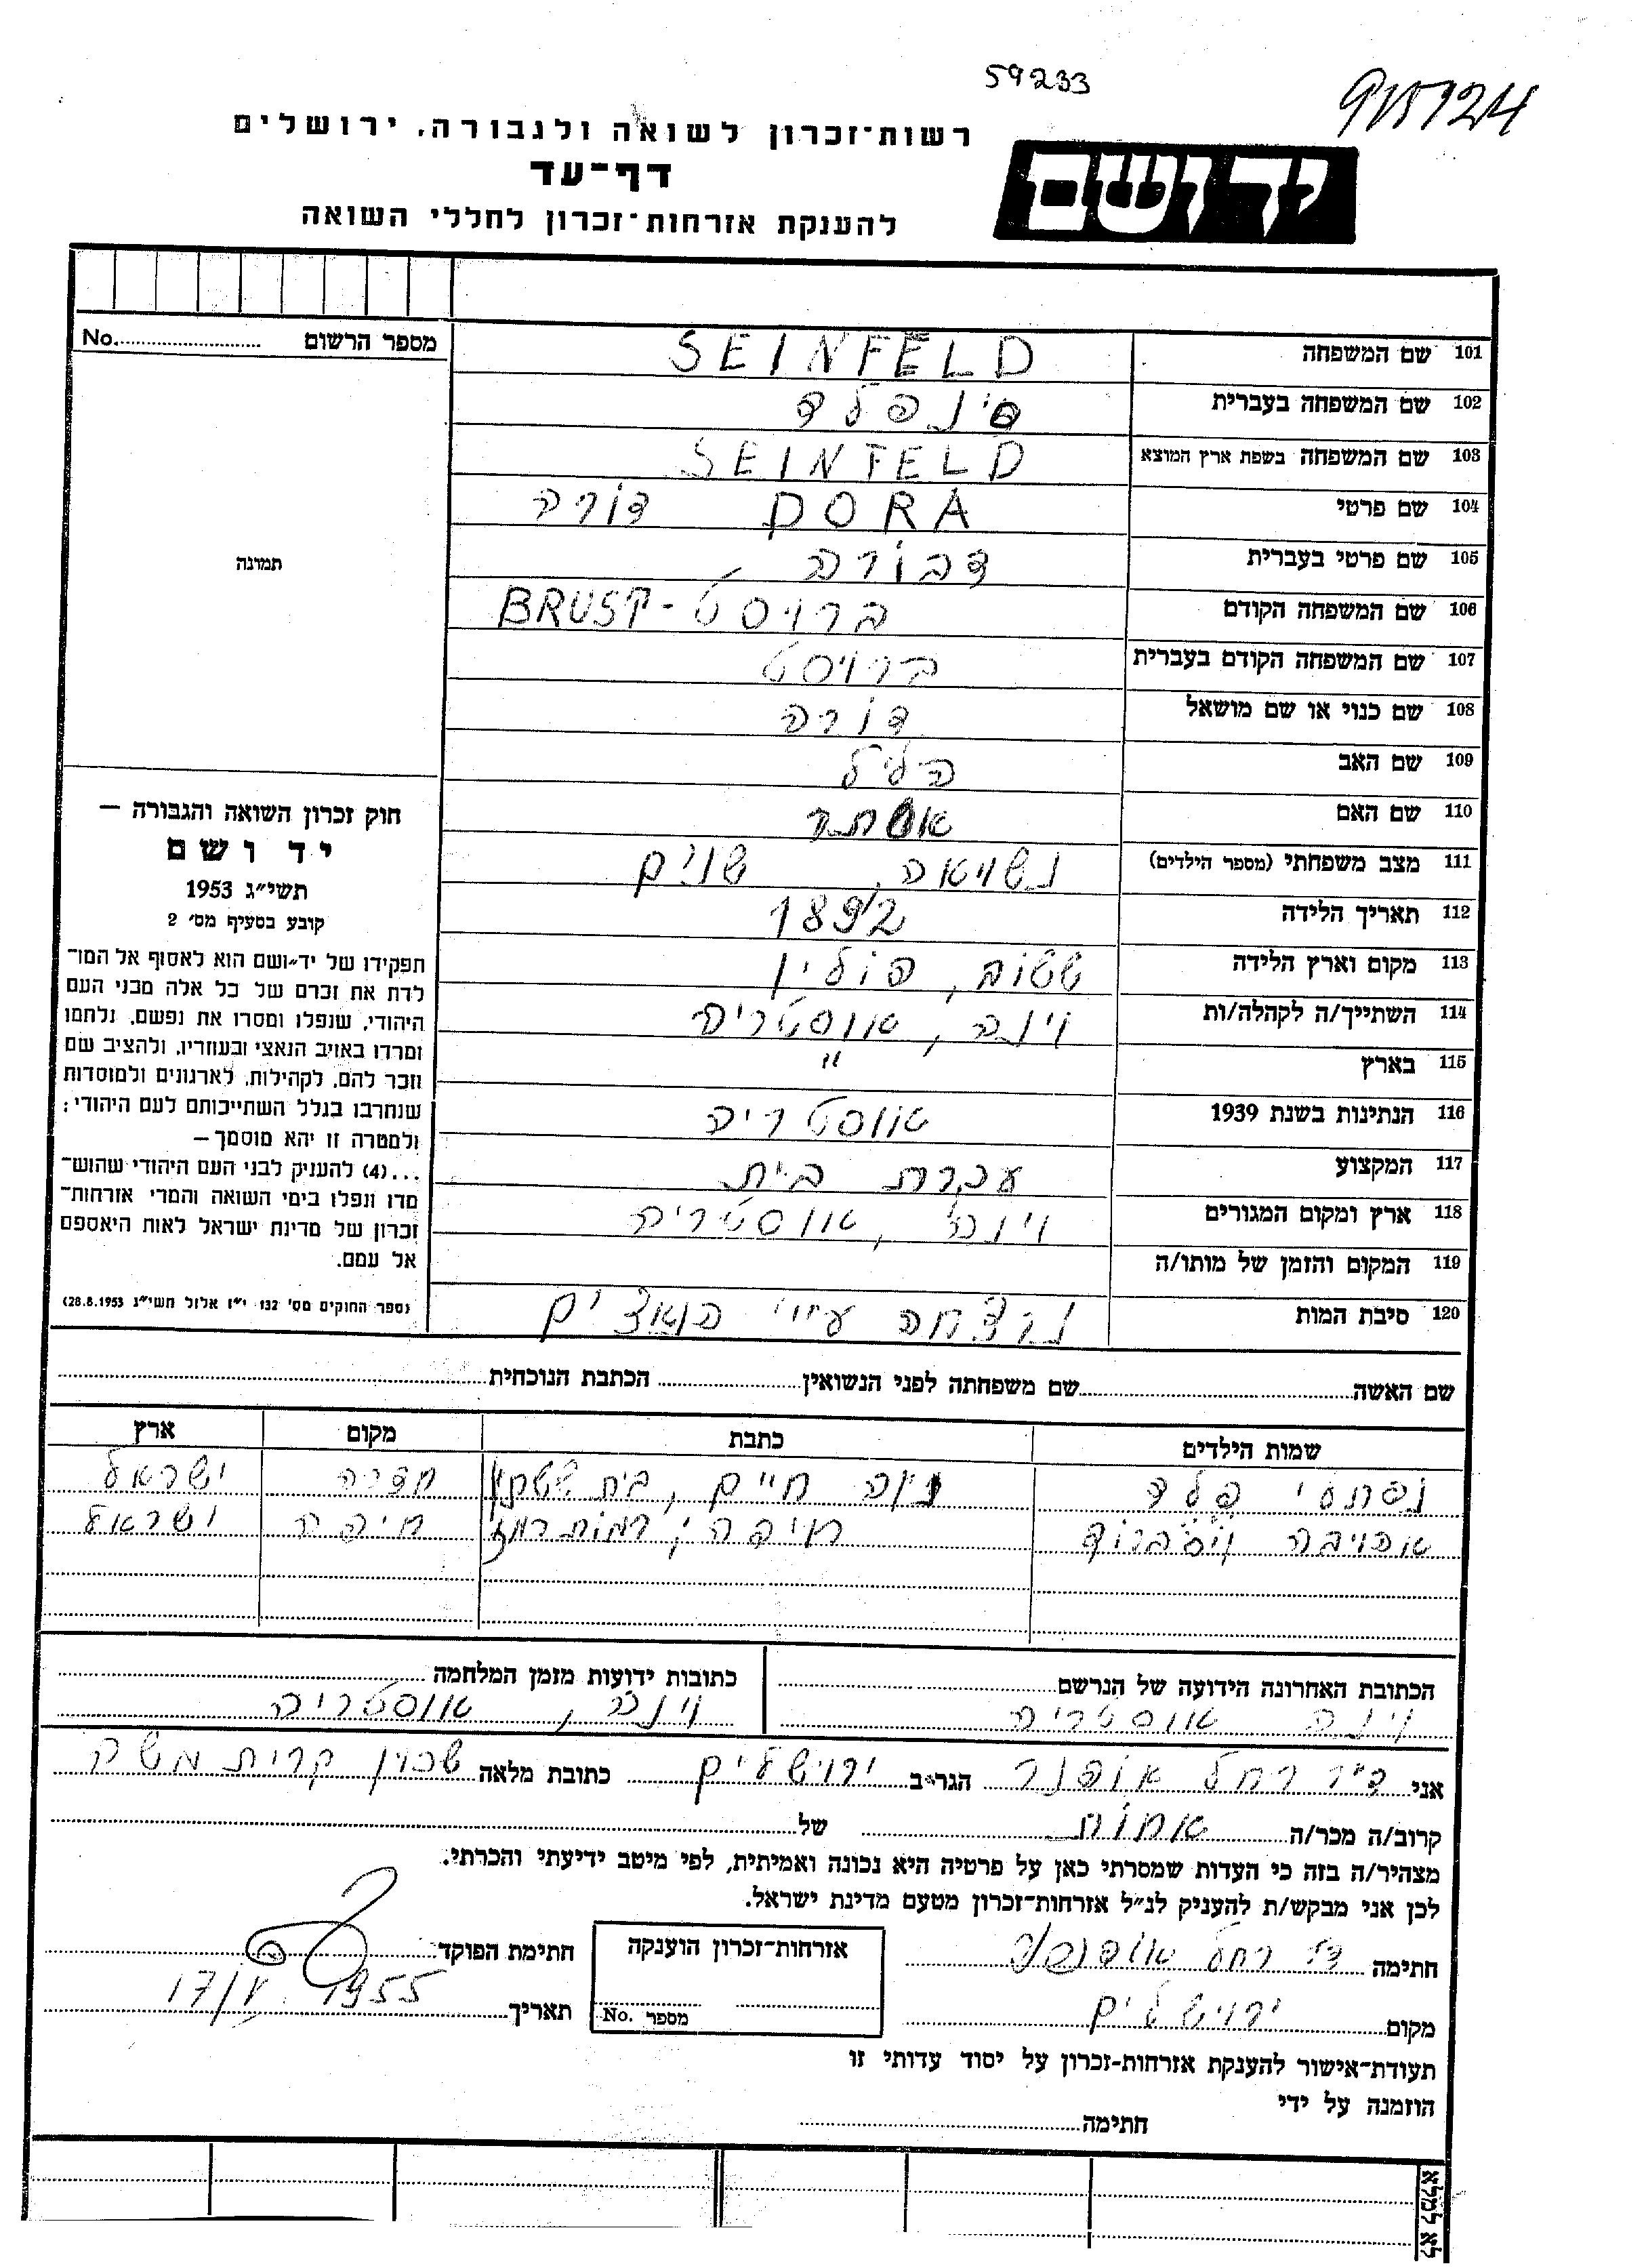 59233
915124
רשות־זכרון לשואה ולגבורה, ירושלים
דף־עד
להענקת אזרחות־זכרון לחללי השואה
יד ושם
מספר הרשום No.
101 שם המשפחה SEINFELD
102 שם המשפחה בעברית סינפלד
103 שם המשפחה בשפת ארץ המוצא SEINFELD
104 שם פרטי DORA דורה
105 שם פרטי בעברית דבורה
106 שם המשפחה הקודם ברויסט - BRUST
107 שם המשפחה הקודם בעברית ברויסט
108 שם כנוי או שם מושאל דורה
109 שם האב הלל
110 שם האם אסתר
111 מצב משפחתי (מספר הילדים) נשויאה, שנים
112 תאריך הלידה 1892
113 מקום וארץ הלידה פולין
114 השתייך/ה לקהלה/ות וינה, אוסטריה
115 בארץ "
116 הנתינות בשנת 1939 אוסטריה
117 המקצוע עקרת בית
118 ארץ ומקום המגורים וינה, אוסטריה
119 המקום והזמן של מותו/ה
120 סיבת המות נרצחה ע״י הנאצים
תמונה
חוק זכרון השואה והגבורה –
יד ושם
תשי״ג 1953
קובע בסעיף מס׳ 2
תפקידו של יד־ושם הוא לאסוף אל המו־
לדת את זכרם של כל אלה מבני העם
היהודי, שנפלו ומסרו את נפשם, נלחמו
ומרדו באויב הנאצי ובעוזריו, ולהציב שם
וזכר להם, לקהילות, לארגונים ולמוסדות
שנחרבו בגלל השתייכותם לעם היהודי;
ולמטרה זו יהא מוסמך –
...(4) להעניק לבני העם היהודי שהוש־
מדו ונפלו בימי השואה והמרי אזרחות־
זכרון של מדינת ישראל לאות היאספם
אל עמם.
(ספר החוקים מס׳ 132 י״ז אלול תשי״ג 28.8.1953)
שם האשה שם משפחתה לפני הנשואין הכתבת הנוכחית
שמות הילדים כתבת מקום ארץ
נפתלי פלד נוה חיים, בית חדרה ישראל
אהויבה חיפה, רמות רמז חיפה ישראל
הכתובת האחרונה הידועה של הנרשם כתובות ידועות מזמן המלחמה
וינה אוסטריה וינה, אוסטריה
אני ד״ר רחל אופנר הגר״ב ירוישלים כתובת מלאה שכון קרית משה
קרוב/ה מכר/ה אחות של
מצהיר/ה בזה כי העדות שמסרתי כאן על פרטיה היא נכונה ואמיתית, לפי מיטב ידיעתי והכרתי.
לכן אני מבקש/ת להעניק לנ״ל אזרחות־זכרון מטעם מדינת ישראל.
חתימה ד״ר רחל אזרחות־זכרון הוענקה חתימת הפוקד
מקום ירוישלים מספר No. תאריך 17/V 1955
תעודת־אישור להענקת אזרחות־זכרון על יסוד עדותי זו
הוזמנה על ידי
חתימה
לא למלא